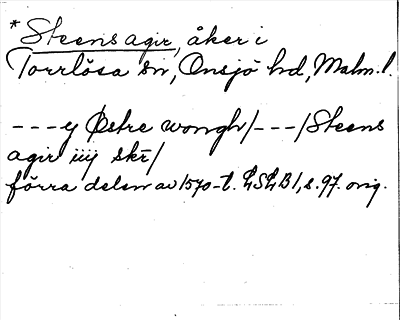 * Steens agir, åker i
Torrlösa sn, Onsjö hd, Malm. l.
---y Østre wongh/---/Steens
agir iiij skr̄/
förra delen av 1570-t. LSLB1, s. 97. orig.